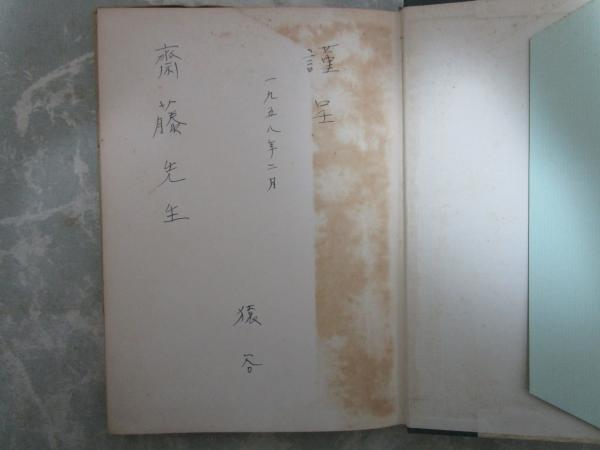 謹呈
一九五八年二月
猿谷
齋藤先生